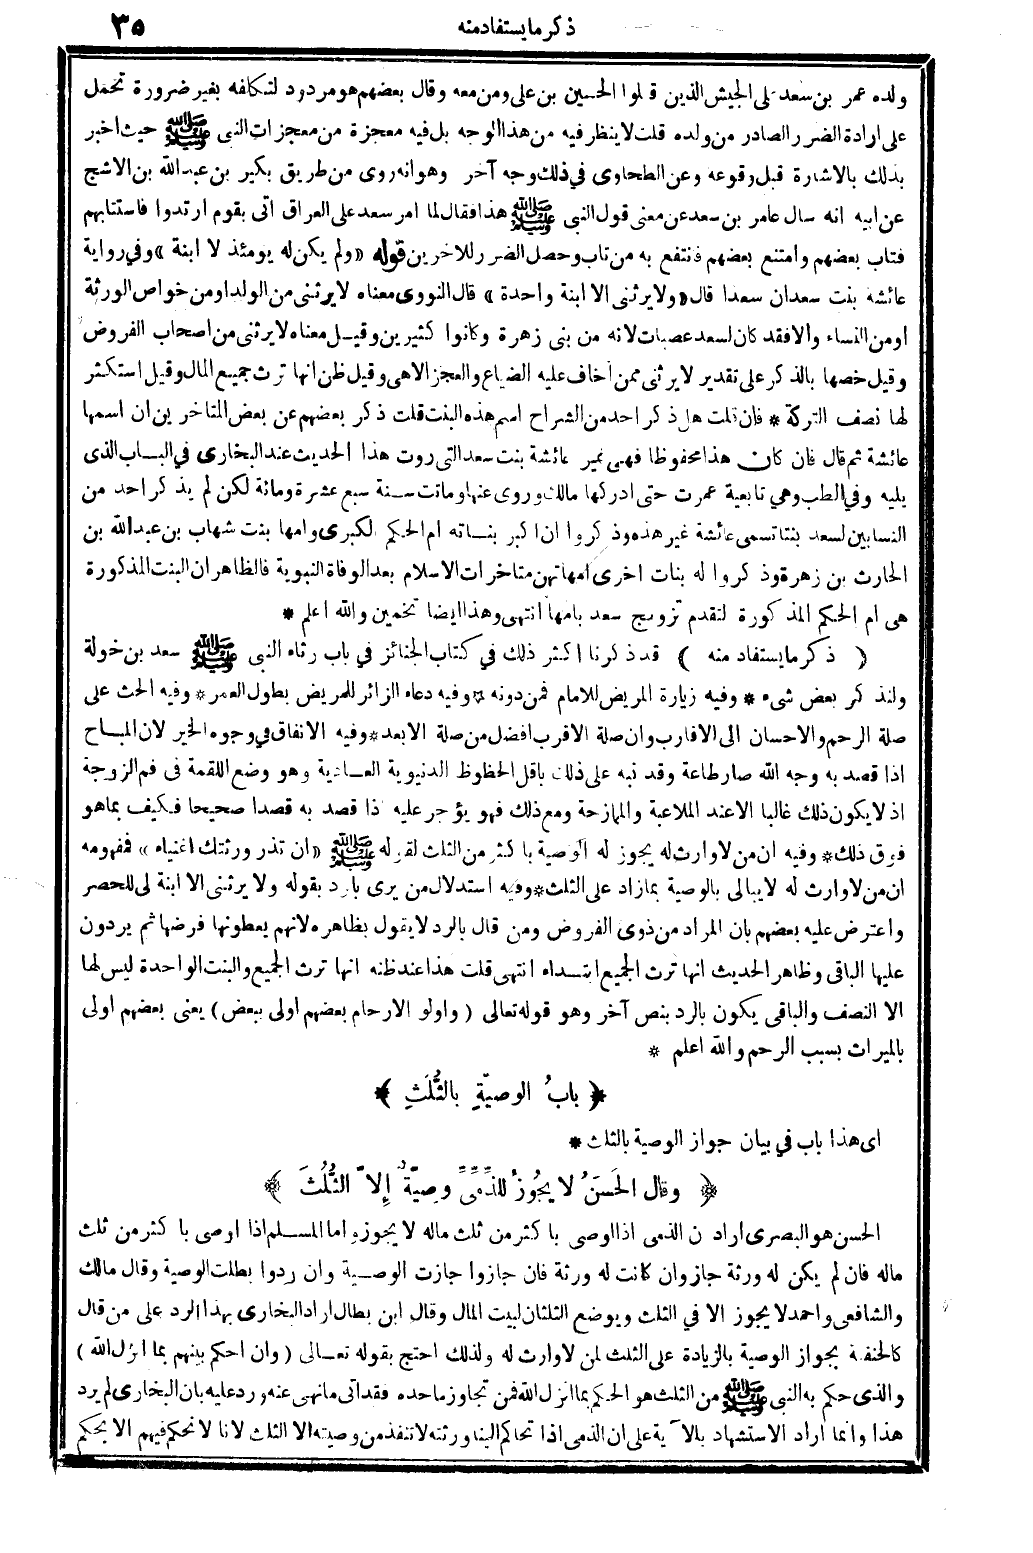 ذكر مايستفاد منه
٣٥
ولده عمر بن سعد على الجيش الذين قتلوا الحسين بن على ومن معه وقال بعضهم هو مردود لتكلفه بغير ضرورة تحمل
على ارادة الضرر الصادر من ولده قلت لا ينظر فيه من هذا الوجه بل فيه معجزة من معجزات النبى ﷺ حيث اخبر
بذلك بالاشارة قبل وقوعه وعن الطحاوى فى ذلك وجه آخر وهو انه روى من طريق بكير بن عبد الله بن الاشج
عن ابيه انه سال عامر بن سعد عن معنى قول النبى ﷺ هذا فقال لما امر سعد على العراق اتى بقوم ارتدوا فاستتابهم
فتاب بعضهم وامتنع بعضهم فانتفع به من تاب وحصل الضرر للاخرين قوله «ولم يكن له يومئذ لا ابنة» وفي رواية
عائشة بنت سعد ان سعدا قال «ولا يرثنى الا ابنة واحدة» قال النووى معناه لا يرثنى من الولد او من خواص الورثة
او من النساء والا فقد كان لسعد عصبات لانه من بنى زهرة وكانوا كثيرين وقيل معناه لا يرثنى من اصحاب الفروض
وقيل خصها بالذكر على تقدير لا يرثنى ممن اخاف عليه الضياع والعجز الا هى وقيل ظن انها ترث جميع المال وقيل استكثر
لها نصف التركة * فان قلت هل ذكر احد من الشراح اسم هذه البنت قلت ذكر بعضهم عن بعض المتاخرين ان اسمها
عائشة ثم قال فان كان هذا محفوظا فهى غير عائشة بنت سعد التى روت هذا الحديث عند البخارى في الباب الذى
يليه وفي الطب وهي تابعية عمرت حتى ادركها مالك وروى عنها وماتت سنة سبع عشرة ومائة لكن لم يذكر احد من
النسابين لسعد بنتا تسمى عائشة غير هذه وذكروا ان اكبر بناته ام الحكم الكبرى وامها بنت شهاب بن عبدالله بن
الحارث بن زهرة وذكروا له بنات اخرى امهاتهن متاخرات الاسلام بعد الوفاة النبوية فالظاهر ان البنت المذكورة
هى ام الحكم المذكورة لتقدم تزويج سعد بامها انتهى وهذا ايضا تخمين والله اعلم *
( ذكر مايستفاد منه ) قد ذكرنا اكثر ذلك في كتاب الجنائز في باب رثاء النبى ﷺ سعد بن خولة
ولنذكر بعض شىء * وفيه زيارة المريض للامام فمن دونه * وفيه دعاء الزائر للمريض بطول العمر * وفيه الحث على
صلة الرحم والاحسان الى الاقارب وان صلة الاقرب افضل من صلة الابعد * وفيه الانفاق في وجوه الخير لان المباح
اذا قصد به وجه الله صار طاعة وقد نبه على ذلك باقل الحظوظ الدنيوية العادية وهو وضع اللقمة فى فم الزوجة
اذ لا يكون ذلك غالبا الا عند الملاعبة والممازحة ومع ذلك فهو يؤجر عليه اذا قصد به قصدا صحيحا فكيف بما هو
فوق ذلك * وفيه ان من لا وارث له يجوز له الوصية باكثر من الثلث لقوله ﷺ «ان تذر ورثتك اغنياء» فمفهومه
ان من لا وارث له لا يبالى بالوصية بما زاد على الثلث * وفيه استدلال من يرى بالرد بقوله ولا يرثنى الا ابنة لى للحصر
واعترض عليه بعضهم بان المراد من ذوى الفروض ومن قال بالرد لا يقول بظاهره لانهم يعطونها فرضها ثم يردون
عليها الباقى وظاهر الحديث انها ترث الجميع ابتداء انتهى قلت هذا عند ظنه انها ترث الجميع والبنت الواحدة ليس لها
الا النصف والباقى يكون بالرد بنص آخر وهو قوله تعالى (واولو الارحام بعضهم اولى ببعض) يعنى بعضهم اولى
بالميراث بسبب الرحم والله اعلم *
﴿ بابُ الوصيّةِ بالثُّلَثِ ﴾
اى هذا باب في بيان جواز الوصية بالثلث *
﴿ وقال الحَسَنُ لا يَجُوزُ للذِّمِّىِّ وصِيّةٌ إلاّ الثُّلُثَ ﴾
الحسن هو البصرى اراد ان الذمى اذا اوصى باكثر من ثلث ماله لا يجوز واما المسلم اذا اوصى باكثر من ثلث
ماله فان لم يكن له ورثة جاز وان كانت له ورثة فان جازوا جازت الوصية وان ردوا بطلت الوصية وقال مالك
والشافعى واحمد لا يجوز الا في الثلث ويوضع الثلثان لبيت المال وقال ابن بطال اراد البخارى بهذا الرد على من قال
كالحنفية بجواز الوصية بالزيادة على الثلث لمن لا وارث له ولذلك احتج بقوله تعالى (وان احكم بينهم بما انزل الله)
والذى حكم به النبى ﷺ من الثلث هو الحكم بما انزل الله فمن تجاوز ما حده فقد اتى ما نهى عنه ورد عليه بان البخارى لم يرد
هذا وانما اراد الاستشهاد بالآية على ان الذمى اذا تحاكم الينا ورثته لا تنفذ من وصيته الا الثلث لانا لا نحكم فيهم الا بحكم